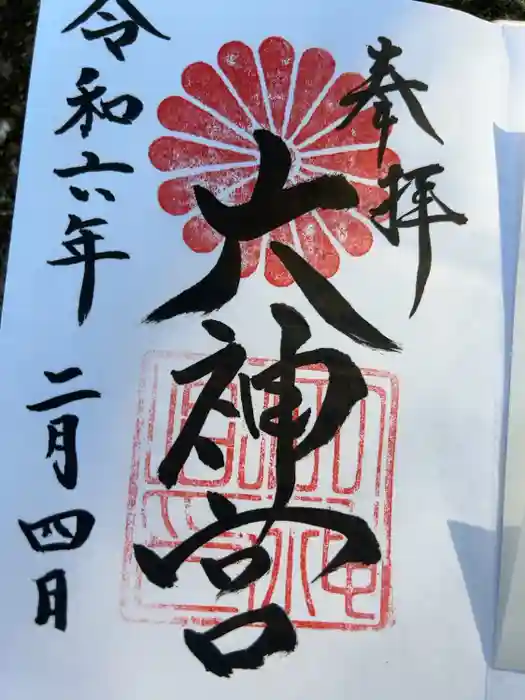 奉拝
六神宮
令和六年 二月四日